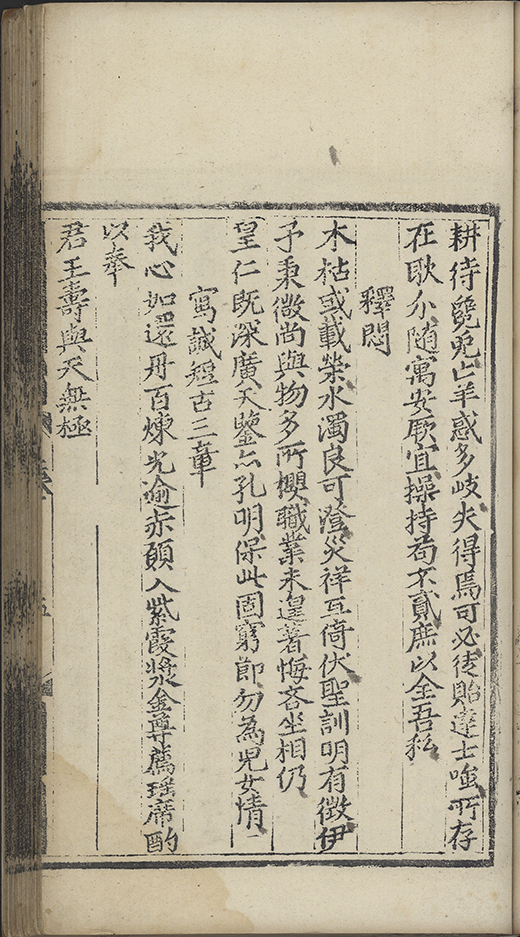 耕待斃兎亡羊惑多岐失得焉可必徒貽達士嗤所存
在耿介随寓安厥宜操持苟不貳庶以全吾私
釋悶
木枯或載榮水濁良可澄災祥互倚伏聖訓明有徵伊
予秉微尚與物多所櫻職業未遑著悔吝坐相仍
皇仁既深廣天鑒亦孔明保此固窮節勿為兒女情
寫誠短古三章
我心如還丹百煉光逾赤願入紫霞漿金尊薦瑤席酌
以奉
君王壽與天無極